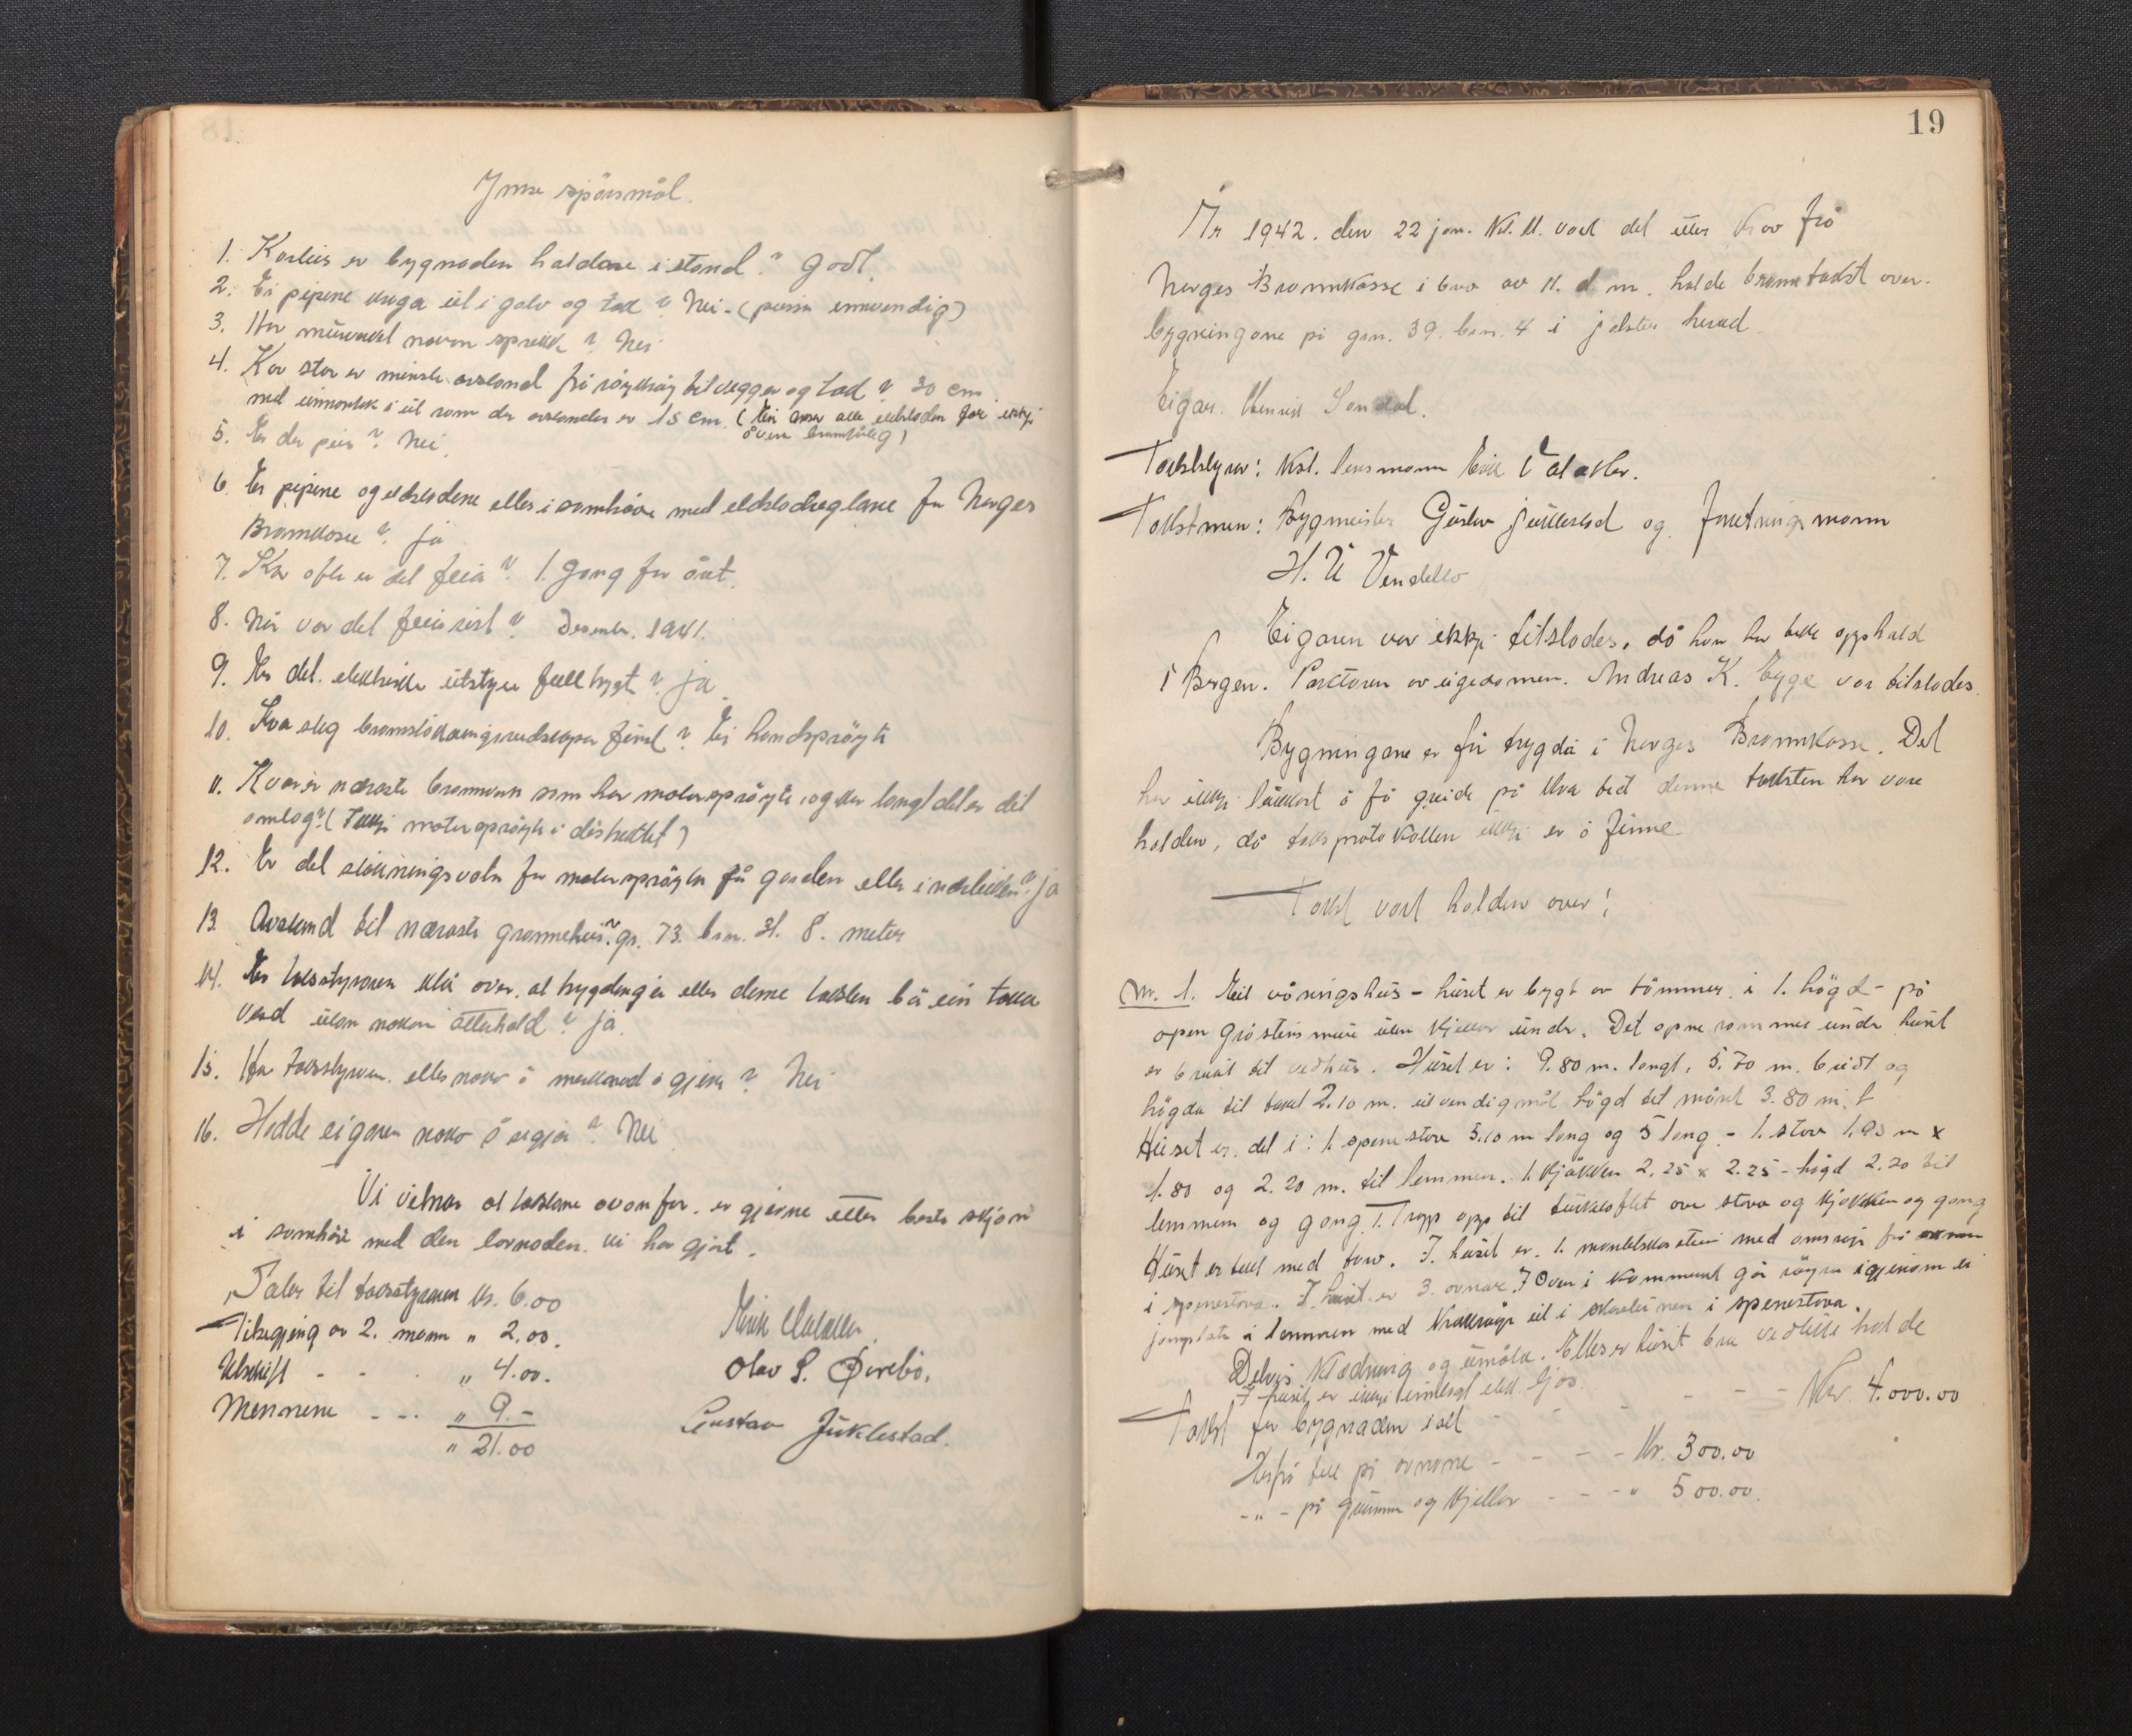 Ymse spörsmål.
1. Korleis er bygnaden haldane i stand? Godt.
2. Er pipene kraga ut i golv og tak? Nei - (pussa innvendig)
3. Har murverket noven sprekk? Nei
4. Kor stor er minste avstand frå röykrör til vegger og tak? 30 cm.
med unnatak i eit rom der avstanden er 15 cm. ( ikkji
även brannfårleg)
5. Er der peis? Nei.
6. Er pipene og eldstadene elles i samhöve med eldstadreglane for Norges
Brannkasse? Ja
7. Kor ofte er det feia? 1. Gong for året.
8. Når var det feia sist? Desember. 1941.
9. Er det elektriske utstyre fulltrygt? ja.
10. Kva slag brannslökkingsreidskaper finst? Ei handspröyte
11. Kvar er næraste brannvern som har motorspröyte og kor langt det er dit
omlag? (Ikkji motorspröyte i distriktet)
12. Er det slökningsvatn for motorspröyta på garden eller i nærleiken? ja
13. Avstand til næraste grannehus? gr. 73. brn. 21. 8. meter
14. Er takstyraren klår over, at trygdinga eller denne taksten bå ein takka
verd utan nokon atterhald? ja.
15. Har takstyraren elles noko å merknad å gjera? Nei
16. Hadde eigaren noko å segja? Nei
Vi vitnar at takstane ovanfor, er gjevne etter beste skjön
i samhöve med den lovnaden vi har gjort.
Salær til takstyraren kr. 6.00
Tilsegjing av 2. menn " 2.00.
Utskrift - - - " 4.00.
Mennene - - - " 9.-
" 21.00
Olav S. Övrebö.
Gustav Jüklestad.
19
År 1942. den 22 jan. Kl. 11. vart det etter krav frå
Norges Brannkasse i bruk av N. d. m. halde branntakst over
bygningane på grn. 39. brn. 4 i jölster herad.
Eigar. Henrik Sandal.
Takststyrar: Kst. lensmann Eirik
Takstmen: Bygmeister Gustav jüklestad og. Foretnings mann
H. U Vendelbo
Eigaren var ikkji tilstades, då han har teke opphald
i Bergen. Paktaren av eigedomen. Andreas K. Eyge var tilstades.
Bygningane er för trygda i Norges Brannkasse. Det
har ikkji lukkast å få greide på kva tid denne taksten har vore
halden, då taksprotokollen ikkji er å finne
Takst vart halden over:
Nr. 1. Eit våningshus - huset er bygt av tömmer i 1. högd - på
open gråsteins mur uten kjeller under. Det opne rommet under huset
er brukt til vedhus. Huset er: 9.80 m. langt, 5.70 m. breidt og
högda til taket 2.10 m. utvendig mål högd til mönet 3.80 m.
Huset er. del i: 1. spenestove 5.10 m lang og 5 lang - 1. stove 1.95 m x
1.80 og 2.20 m. til lemmen. 1. kjökken 2.25 x 2.25 - högd 2.20 til
lemmen og gang. 1. Trapp opp til turkeloftet over stova og kjökken og gang
Huset er tekt med torv. I. huset er 1. mantelskorstein med omsnin frå
i spenestova. I huset er 3. ovnar. I Oven i kammerset går röyra igjenom ei
jarnplate i lemmen med krakrör ut i skorsteinen i spenestova.
Delvis klædning og umåla. Elles er huset bra vedlike halde
I huset er ikkji innlagt elek. ljos.
Takst for bygnaden i alt - - - - - Kr. 4.000.00
Herfrå fell på ovnane - - - - Kr. 300.00
-"- på grunn og kjeller - - - " 500.00.